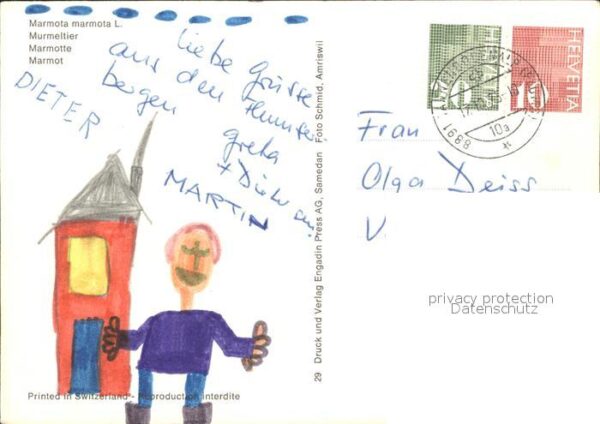 Marmota marmota L.
Murmeltier
Marmotte
Marmot
liebe Grüsse
aus den Flumser
bergen
greta
+ Dieter
DIETER
MARTIN
HELVETIA
HELVETIA
10
8891
10a
Frau
Olga Deiss
V
privacy protection
Datenschutz
29 Druck und Verlag Engadin Press AG, Samedan Foto Schmid, Amriswil
Printed in Switzerland - Reproduction interdite